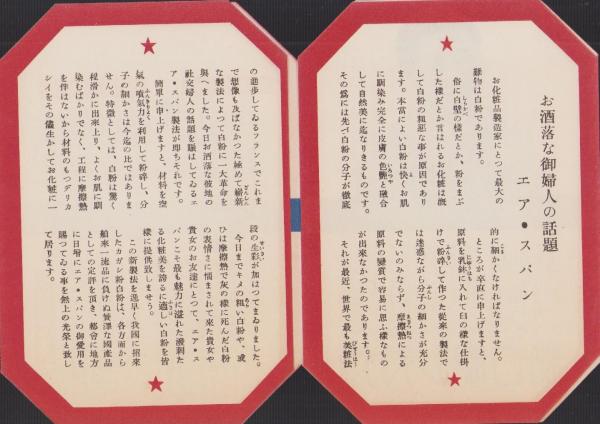 お洒落な御婦人の話題
エア・スパン
お化粧品製造家にとって最大の
難物は白粉であります。
俗に白壁の樣だとか、粉をまぶ
した樣だとか言はれるお化粧は概
して白粉の粗惡な事が原因であり
ます。本當によい白粉は快くお肌
に馴染み完全に皮膚の色艶と融合
して自然美に迄なりきるものです。
その爲には先づ白粉の分子が徹底
的に細かくなければなりません。
ところが卒直に申上げますと、
原料を乳鉢に入れて臼の樣な仕掛
けで粉碎して作つた從來の製法で
は迷惑ながら分子の細かさが充分
でないのみならず、摩擦熱による
原料の變質で容易に思ふ樣なもの
が出來なかつたのであります。
それが最近、世界で最も美粧法
の進步してゐるフランスでこれま
で想像も及ばなかつた極めて嶄新
な製法によつて白粉に一大革命を
與へました。今日お洒落な彼地の
社交婦人の話題を賑はしてゐるエ
ア・スパン製法が卽ちそれです。
簡單に申上げますと、材料を空
氣の噴氣力を利用して粉碎し、分
子の細かさは今迄の比ではありま
せん。特徵としては、白粉は驚く
程滑かに出來上り、よくお肌に馴
染むばかりでなく、工程に摩擦熱
を伴はないから材料のもつデリカ
シイをその儘生かしてお化粧に一
段の生彩が加はつてまゐりました。
今日までキメの粗い白粉や、或
ひは摩擦熱で灰の樣に死んだ白粉
の表情さに惱まされて來た貴女や
貴女のお友達にとつて、エア・ス
パンこそ最も魅力に溢れた潑剌た
る化粧美を誇るに適しい白粉を皆
樣に提供致しませう。
この新製法を逸早く我國に招來
したカガシ粉白粉は、各方面から
舶來一流品に負けぬ贅澤な國產品
としての定評を頂き、都會に地方
に日增にエア・スパンの御愛用を
賜つてゐる事を無上の光榮と致し
て居ります。